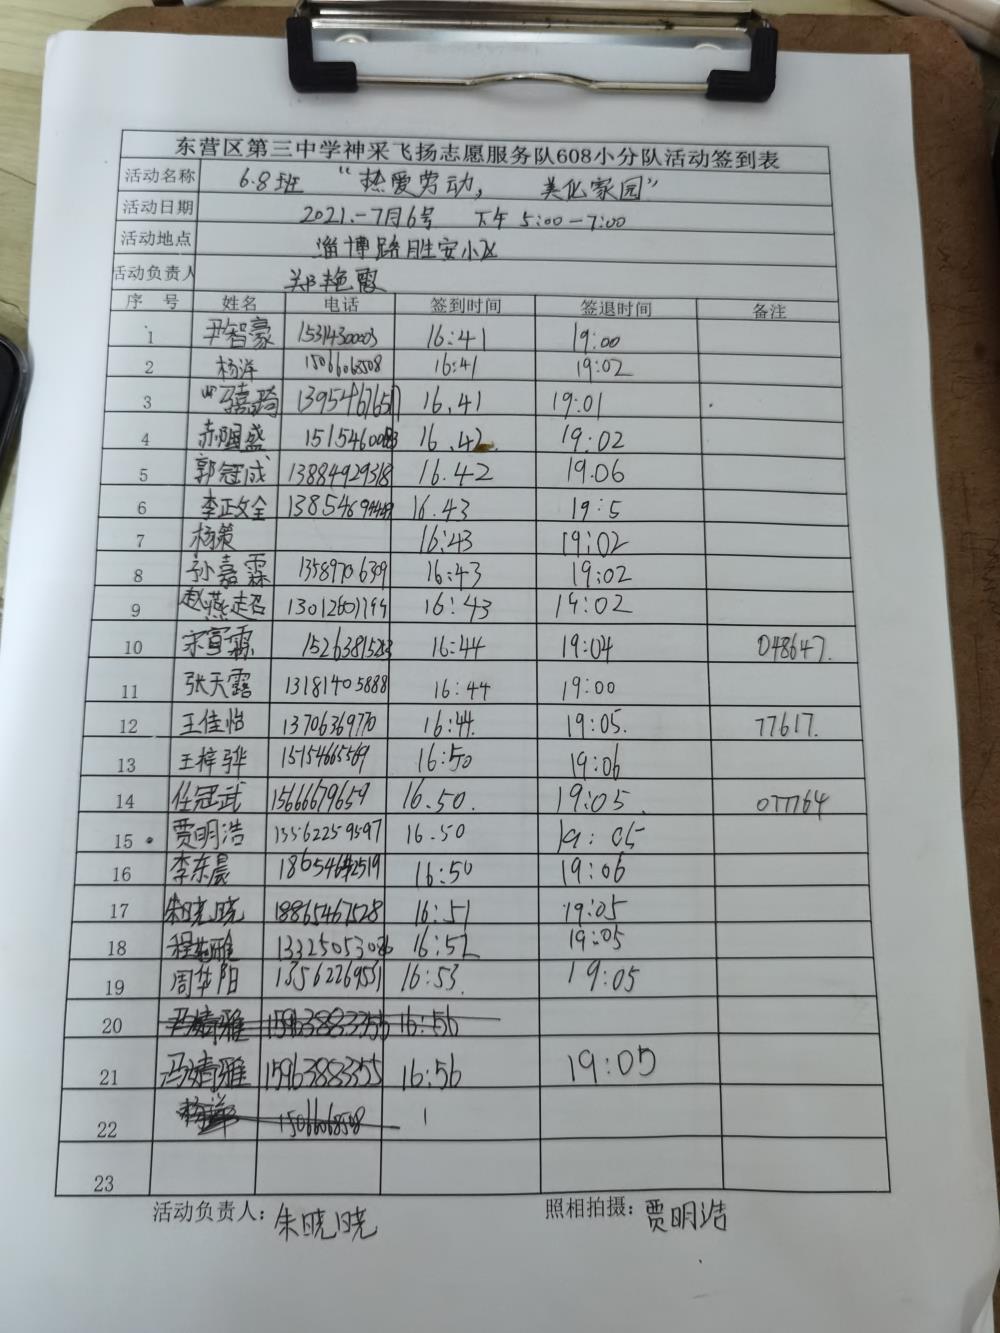 东营区第三中学神采飞扬志愿服务队608小分队活动签到表
活动名称 6.8班 “热爱劳动， 美化家园”
活动日期 2021.-7月6号 下午5:00-7:00
活动地点 淄博路胜安小区
活动负责人 郑艳霞
序 号 姓名 电话 签到时间 签退时间 备注
1 尹智豪 16:41 19:00
2 杨洋 15066068508 16:41 19:02
3 冯嘉琦 16.41 19:01
4 16.42 19:02
5 郭冠成 13884929318 16.42 19.06
6 李政全 16.43 19:5
7 杨策 16:43 19:02
8 孙嘉霖 13589706309 16:43 19:02
9 赵燕超 16:43 19:02
10 宋宣霖 16:44 19:04 048647.
11 张天露 13181405888 16:44 19:00
12 王佳怡 13706369770 16:44. 19:05. 77617.
13 王梓骅 15154665569 16:50 19:06
14 任冠武 15666679659 16.50. 19:05. 077764
15 贾明浩 13562259597 16.50 19:05
16 李东晨 16:50 19:06
17 朱晓晓 18865467528 16:51 19:05
18 16:52 19:05
19 周华阳 13562269531 16:53. 19:05
20 15963883355 16:56
21 冯婧雅 15963883355 16:56 19:05
22 杨洋 15066068508
23
活动负责人：朱晓晓 照相拍摄：贾明浩